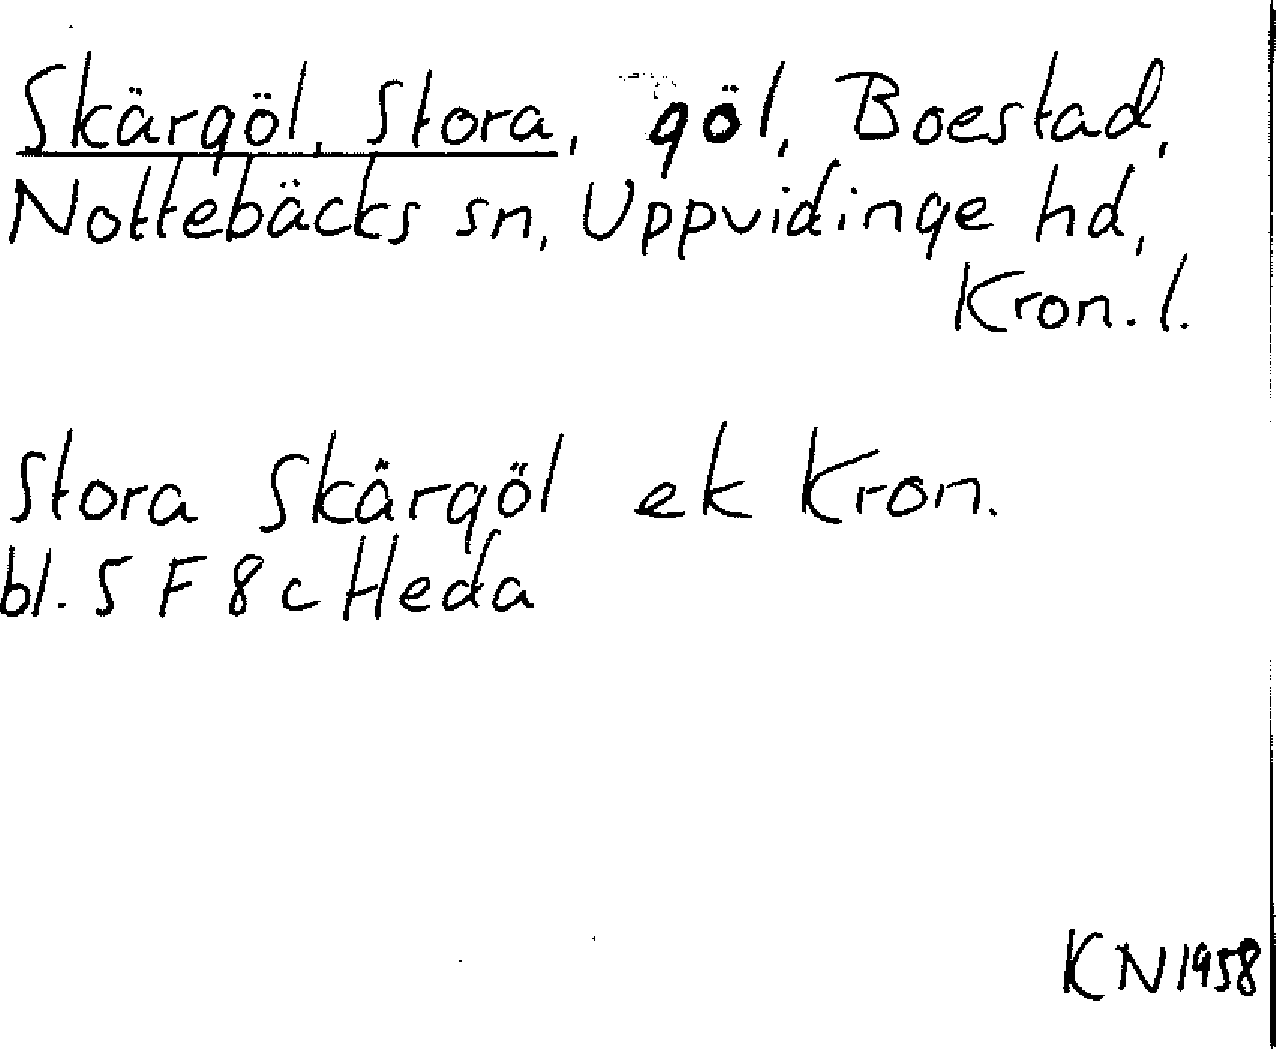 Skärgöl, Stora, göl, Boestad,
Nottebäcks sn, Uppvidinge hd,
Kron. l.
Stora Skärgöl ek Kron.
bl. 5 F 8 c Heda
KN 1958